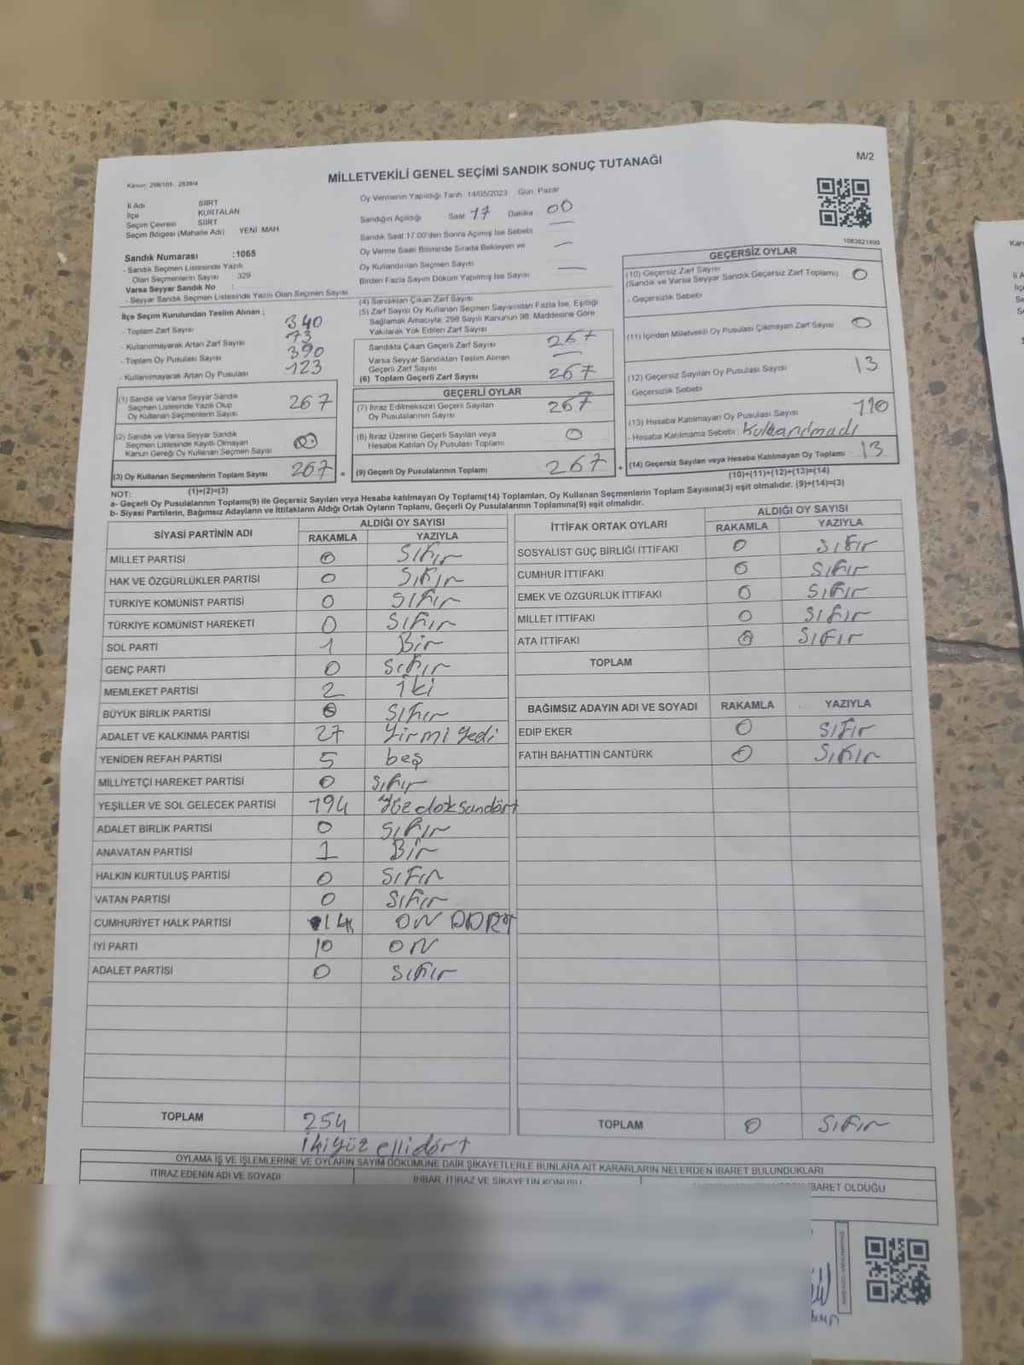 MİLLETVEKİLİ GENEL SEÇİMİ SANDIK SONUÇ TUTANAĞI
M/2
Kanun: 298/105, 2839/4
İl Adı SİİRT
İlçe KURTALAN
Seçim Çevresi SİİRT
Seçim Bölgesi (Mahalle Adı) YENİ MAH
Sandık Numarası :1065
- Sandık Seçmen Listesinde Yazılı
Olan Seçmenlerin Sayısı : 329
Varsa Seyyar Sandık No
- Seyyar Sandık Seçmen Listesinde Yazılı Olan Seçmen Sayısı
Oy Vermenin Yapıldığı Tarih 14/05/2023 Gün: Pazar
Sandığın Açıldığı Saat 17 Dakika 00
Sandık Saat 17:00'den Sonra Açılmış İse Sebebi —
Oy Verme Saati Bitiminde Sırada Bekleyen ve
Oy Kullandırılan Seçmen Sayısı —
Birden Fazla Sayım Döküm Yapılmış İse Sayısı —
İlçe Seçim Kurulundan Teslim Alınan ;
- Toplam Zarf Sayısı 340
- Kullanılmayarak Artan Zarf Sayısı 73
- Toplam Oy Pusulası Sayısı 390
- Kullanılmayarak Artan Oy Pusulası 123
(1) Sandık ve Varsa Seyyar Sandık
Seçmen Listesinde Yazılı Olup
Oy Kullanan Seçmenlerin Sayısı 267
(2) Sandık ve Varsa Seyyar Sandık
Seçmen Listesinde Kayıtlı Olmayan
Kanun Gereği Oy Kullanan Seçmen Sayısı
(3) Oy Kullanan Seçmenlerin Toplam Sayısı 267
(1)+(2)=(3)
(4) Sandıktan Çıkan Zarf Sayısı
(5) Zarf Sayısı Oy Kullanan Seçmen Sayısından Fazla İse, Eşitliği
Sağlamak Amacıyla; 298 Sayılı Kanunun 98. Maddesine Göre
Yakılarak Yok Edilen Zarf Sayısı
Sandıkta Çıkan Geçerli Zarf Sayısı 267
Varsa Seyyar Sandıktan Teslim Alınan
Geçerli Zarf Sayısı —
(6) Toplam Geçerli Zarf Sayısı 267
GEÇERLİ OYLAR
(7) İtiraz Edilmeksizin Geçerli Sayılan
Oy Pusulalarının Sayısı 267
(8) İtiraz Üzerine Geçerli Sayılan veya
Hesaba Katılan Oy Pusulaları Toplamı 0
(9) Geçerli Oy Pusulalarının Toplamı 267
GEÇERSİZ OYLAR
(10) Geçersiz Zarf Sayısı
(Sandık ve Varsa Seyyar Sandık Geçersiz Zarf Toplamı) 0
- Geçersizlik Sebebi
(11) İçinden Milletvekili Oy Pusulası Çıkmayan Zarf Sayısı 0
(12) Geçersiz Sayılan Oy Pusulası Sayısı 13
Geçersizlik Sebebi
(13) Hesaba Katılmayan Oy Pusulası Sayısı 110
- Hesaba Katılmama Sebebi: Kullanılmadı
(14) Geçersiz Sayılan veya Hesaba Katılmayan Oy Toplamı 13
(10)+(11)+(12)+(13)=(14)
NOT:
a- Geçerli Oy Pusulalarının Toplamı(9) ile Geçersiz Sayılan veya Hesaba katılmayan Oy Toplamı(14) Toplamları, Oy Kullanan Seçmenlerin Toplam Sayısına(3) eşit olmalıdır. (9)+(14)=(3)
b- Siyasi Partilerin, Bağımsız Adayların ve İttifakların Aldığı Ortak Oyların Toplamı, Geçerli Oy Pusulalarının Toplamına(9) eşit olmalıdır.
SİYASİ PARTİNİN ADI ALDIĞI OY SAYISI
RAKAMLA YAZIYLA
MİLLET PARTİSİ 0 Sıfır
HAK VE ÖZGÜRLÜKLER PARTİSİ 0 Sıfır
TÜRKİYE KOMÜNİST PARTİSİ 0 Sıfır
TÜRKİYE KOMÜNİST HAREKETİ 0 Sıfır
SOL PARTİ 1 Bir
GENÇ PARTİ 0 Sıfır
MEMLEKET PARTİSİ 2 iki
BÜYÜK BİRLİK PARTİSİ 0 Sıfır
ADALET VE KALKINMA PARTİSİ 27 Yirmi Yedi
YENİDEN REFAH PARTİSİ 5 beş
MİLLİYETÇİ HAREKET PARTİSİ 0 Sıfır
YEŞİLLER VE SOL GELECEK PARTİSİ 194 Yüz doksandört
ADALET BİRLİK PARTİSİ 0 Sıfır
ANAVATAN PARTİSİ 1 Bir
HALKIN KURTULUŞ PARTİSİ 0 Sıfır
VATAN PARTİSİ 0 Sıfır
CUMHURİYET HALK PARTİSİ 14 ON DÖRT
İYİ PARTİ 10 ON
ADALET PARTİSİ 0 Sıfır
TOPLAM 254
ikiyüz ellidört
İTTİFAK ORTAK OYLARI ALDIĞI OY SAYISI
RAKAMLA YAZIYLA
SOSYALİST GÜÇ BİRLİĞİ İTTİFAKI 0 Sıfır
CUMHUR İTTİFAKI 0 Sıfır
EMEK VE ÖZGÜRLÜK İTTİFAKI 0 Sıfır
MİLLET İTTİFAKI 0 Sıfır
ATA İTTİFAKI 0 Sıfır
TOPLAM
BAĞIMSIZ ADAYIN ADI VE SOYADI RAKAMLA YAZIYLA
EDİP EKER 0 Sıfır
FATİH BAHATTİN CANTÜRK 0 Sıfır
TOPLAM 0 Sıfır
OYLAMA İŞ VE İŞLEMLERİNE VE OYLARIN SAYIM DÖKÜMÜNE DAİR ŞİKAYETLERLE BUNLARA AİT KARARLARIN NELERDEN İBARET BULUNDUKLARI
İTİRAZ EDENİN ADI VE SOYADI
İHBAR, İTİRAZ VE ŞİKAYETİN KONUSU
İBARET OLDUĞU